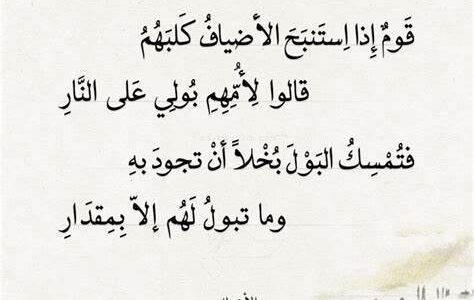 قَومٌ إِذا اِستَنبَحَ الأضيافُ كَلبَهُمُ
قالوا لِأُمِّهِمِ بُولِي عَلى النَّارِ
فتُمْسِكُ البَوْلَ بُخْلاً أنْ تجودَ بهِ
وما تبولُ لَهُم إلاّ بِمِقدَارِ